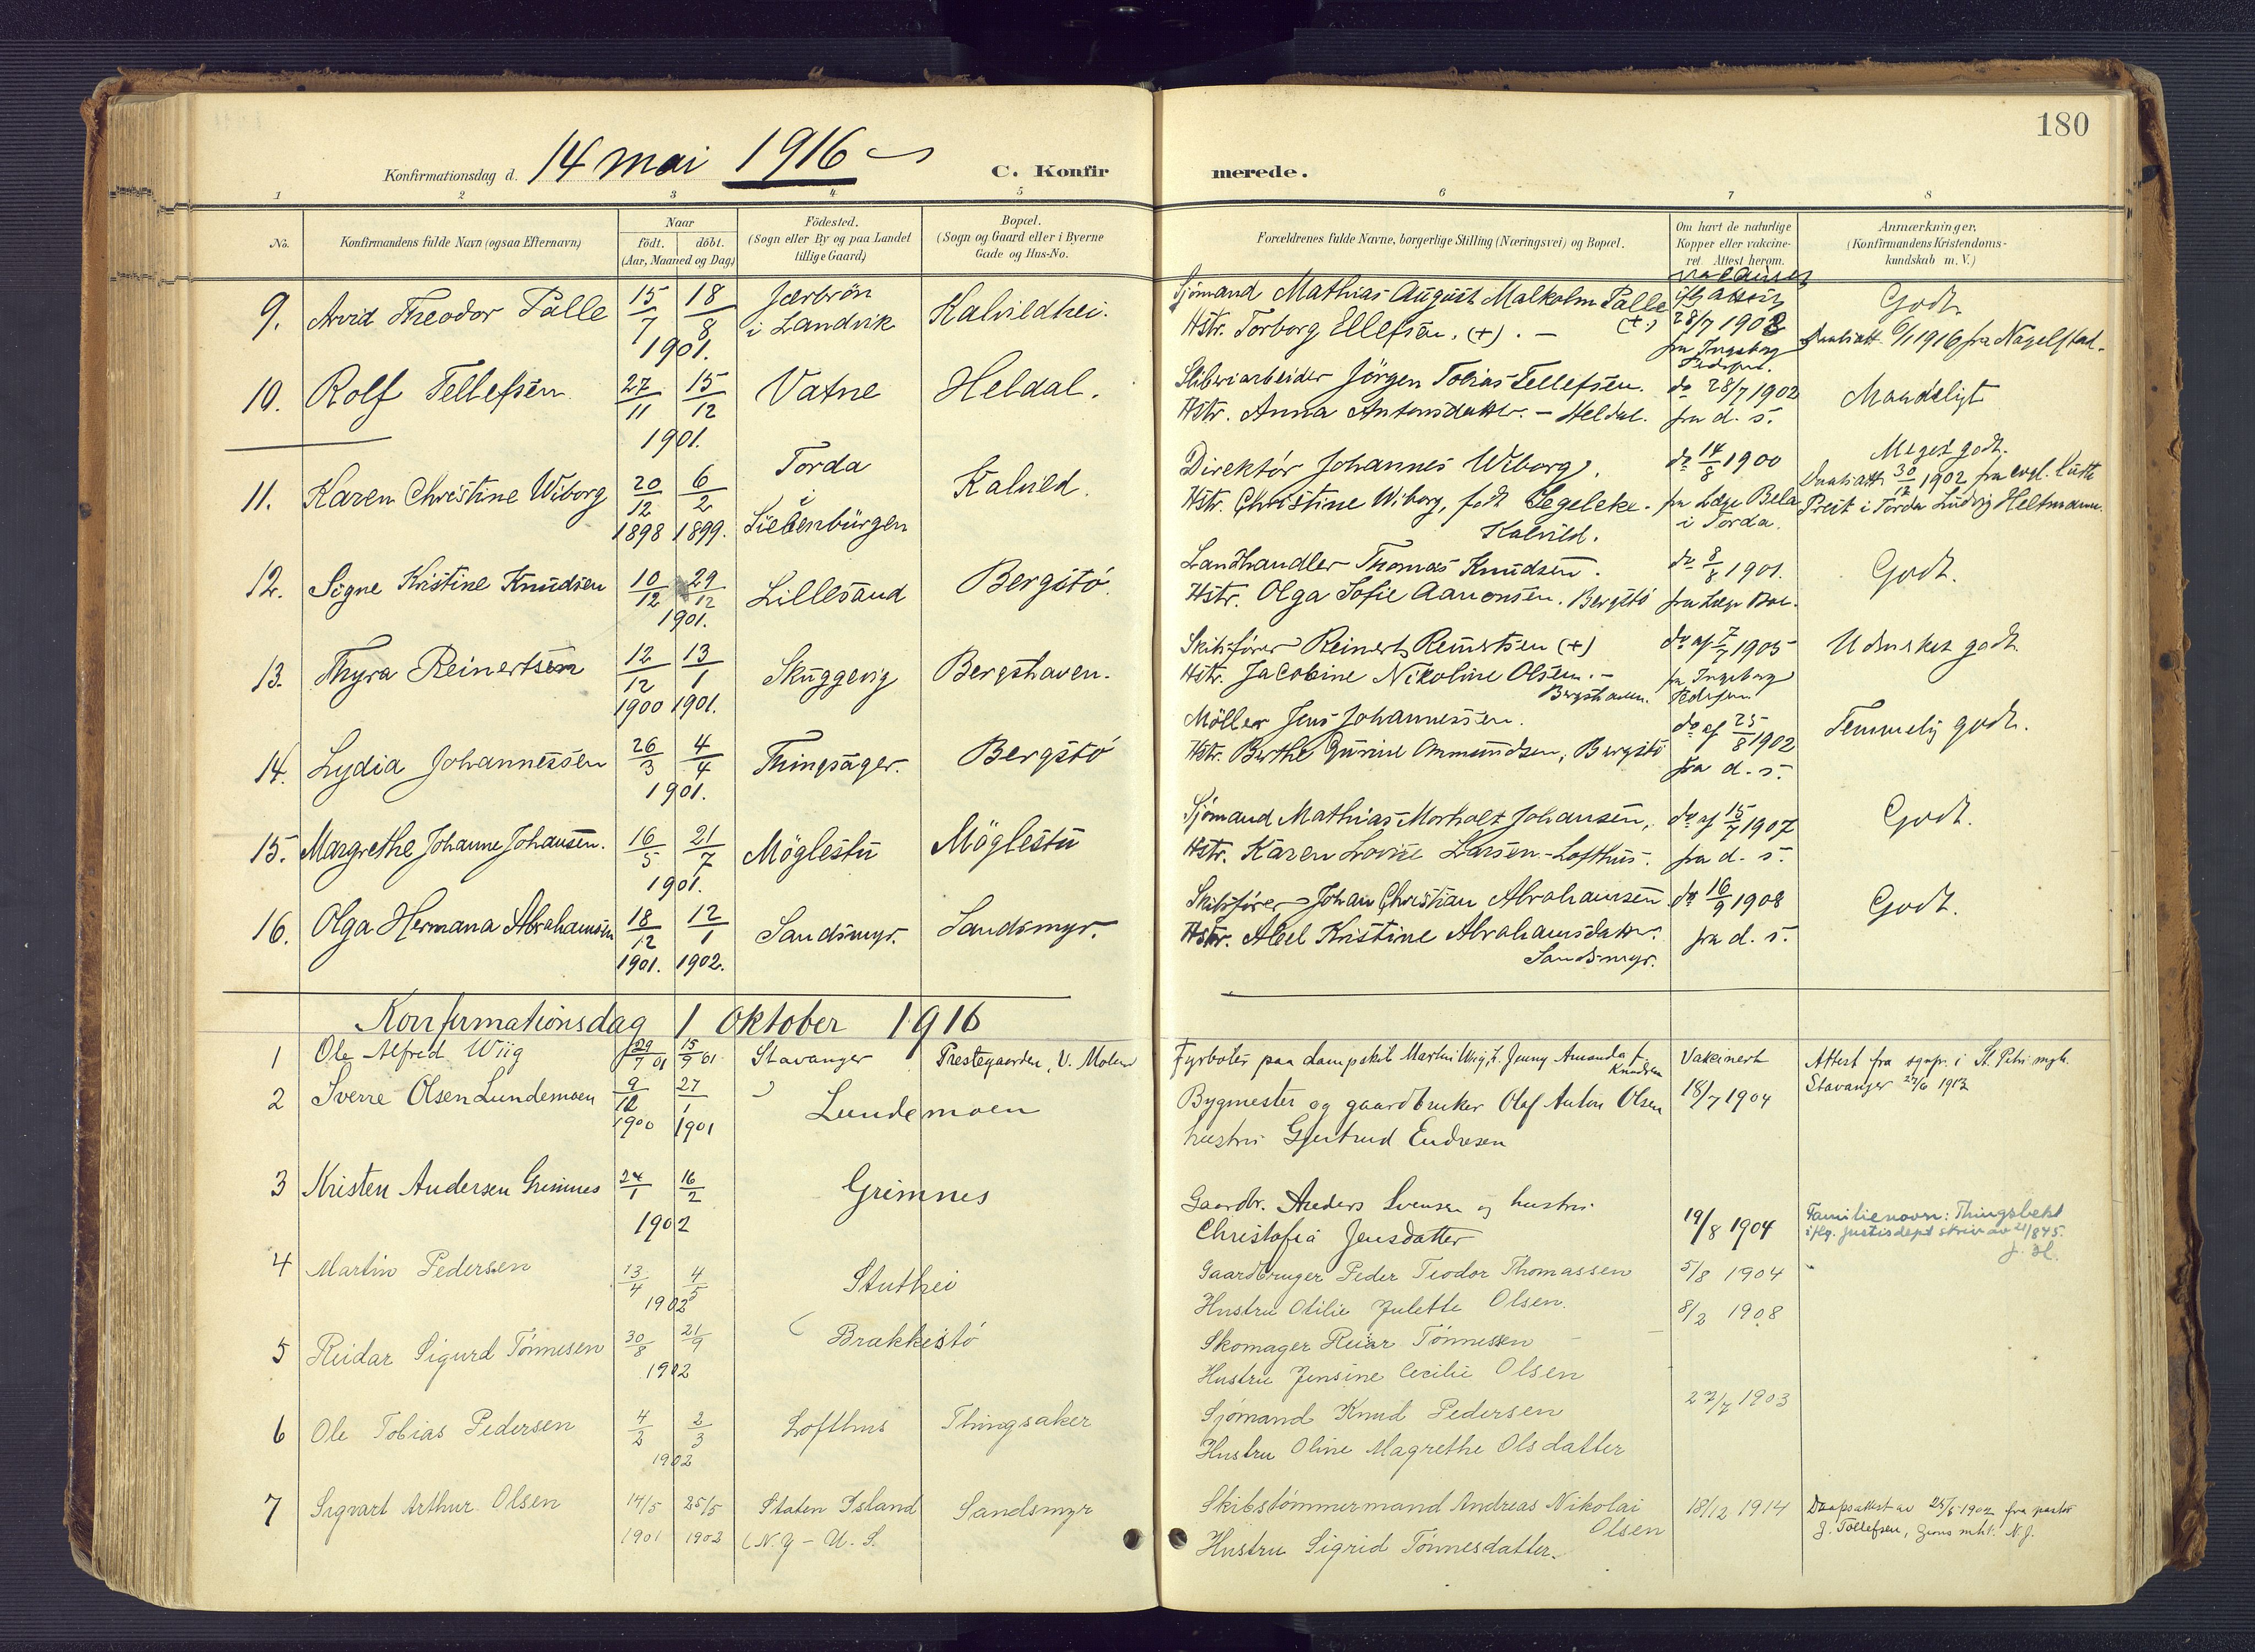 180
Konfirmationsdag d. 14 mai 1916
C. Konfirmerede.
1 2 3 4 5 6 7 8
No.
Konfirmandens fulde Navn (ogsaa Efternavn)
Naar
födt. döbt.
(Aar, Maaned og Dag)
Födested.
(Sogn eller By og paa Landet
tillige Gaard)
Bopæl.
(Sogn og Gaard eller i Byerne
Gade og Hus-No.
Forældrenes fulde Navne, borgerlige Stilling (Næringsvei) og Bopæl.
Om havt de naturlige
Kopper eller vakcine-
ret. Attest herom.
Anmærkninger.
(Konfirmandens Kristendoms-
kundskab m. V.)
9. Arvid Theodor Palle 15/7 18/8 1901. i Landvik Kalvildhei.
Sjömand Mathias August Malkolm Palle (+)
Hstr. Torborg Ellefsen. (+). —
28/7 1902
fra Ingeborg Pedersen.
Godt
1916 fra Nagelstad.
10. Rolf Tellefsen 27/11 15/12 1901. Vatne Heldal.
Sliberiarbeider Jörgen Tobias Tellefsen.
Hstr. Anna Antonsdatter. — Heldal.
do 28/7 1902
fra d. s.
Maadeligt
11. Karen Christine Wiborg 20/12 1898 6/2 1899. Torda
i
Siebenbürgen
Kalvild.
Direktör Johannes Wiborg.
Hstr. Christine Wiborg, født Segeleke.
Kalvild.
do 14/8 1900
fra Læge Bela
i Torda.
Meget godt.
Daabsatt. 30/12 1902 fra evgl. luth
Prest i Torda Ludvig Heltmann.
12. Signe Kristine Knudsen 10/12 29/12 1901. Lillesand Bergstö.
Landhandler Thomas Knudsen.
Hstr. Olga Sofie Aanonsen. Bergstö
do 8/8 1901.
fra Læge
Godt.
13. Thyra Reinertsen 12/12 1900 13/1 1901. Skuggevig Bergshaven.
Skibsfører Reinert Reinertsen (+)
Hstr. Jacobine Nikoline Olsen. —
Bergshaven.
do af 7/7 1905
fra Ingeborg
Pedersen
Udmerket godt.
14. Lydia Johannessen 26/3 4/4 1901. Thingsager. Bergstö
Möller Jens Johannessen.
Hstr. Berthe Gurine Ommundsen, Bergstö
do af 25/8 1902
fra d. s.
Temmelig godt.
15. Margrethe Johanne Johansen. 16/5 21/7 1901. Möglestu Möglestu
Sjömand Mathias Morholt Johansen,
Hstr. Karen Lovise Larsen - Lofthus.
do af 15/7 1907
fra d. s.
Godt.
16. Olga Hermana Abrahamsen 18/12 1901. 12/1 1902. Sandsmyr. Sandsmyr.
Skibsfører Johan Christian Abrahamsen.
Hstr. Abel Kristine Abrahamsdatter.
Sandsmyr.
do 16/9 1908
fra d. s.
Godt.
Konfirmationsdag 1 Oktober 1916
1 Ole Alfred Wiig 29/7 01 15/9 01 Stavanger Prestegaarden, V. Moland
Fyrböter paa dampskib Martin Wiig, h. Jenny Amanda f. Knudsen
Vakcinert
Attest fra sgnpr. i St. Petri mgh.
Stavanger 27/6 1912
2 Sverre Olsen Lundemoen 9/12 1900 27/1 1901 Lundemoen
Bygmester og gaardbruker Olaf Anton Olsen
hustru Gjertrud Endresen
18/7 1904
3 Kristen Andersen Grimnes 24/1 16/2 1902 Grimnes
Gaardbr. Anders Svensen og hustru
Christofia Jensdatter
19/8 1904
Familienavn: Thingsbekk
iflg. justisdept skriv av 21/8 45.
J. H.
4 Martin Pedersen 13/4 4/5 1902 Stuthei
Gaardbruger Peder Teodor Thomassen
Hustru Otilie Julette Olsen.
5/8 1904
5 Reidar Sigurd Tönnesen 30/8 21/9 1902 Brækkestö
Skomager Reiar Tönnesen
Hustru Jensine Cecilie Olsen
8/2 1908
6 Ole Tobias Pedersen 4/2 2/3 1902 Lofthus Thingsaker
Sjömand Knud Pedersen
Hustru Oline Magrethe Olsdatter
27/7 1903
7 Sigvart Arthur Olsen 14/5 1901 25/5 1902 Staten Island
(N. Y - U. S.
Sandsmyr
Skibstömmermand Andreas Nikolai
Olsen
Hustru Sigrid Tönnesdatter.
18/12 1914
Daapsattest av 25/5 1902 fra pastor
J. Tollefsen, Zions mht. N. J.